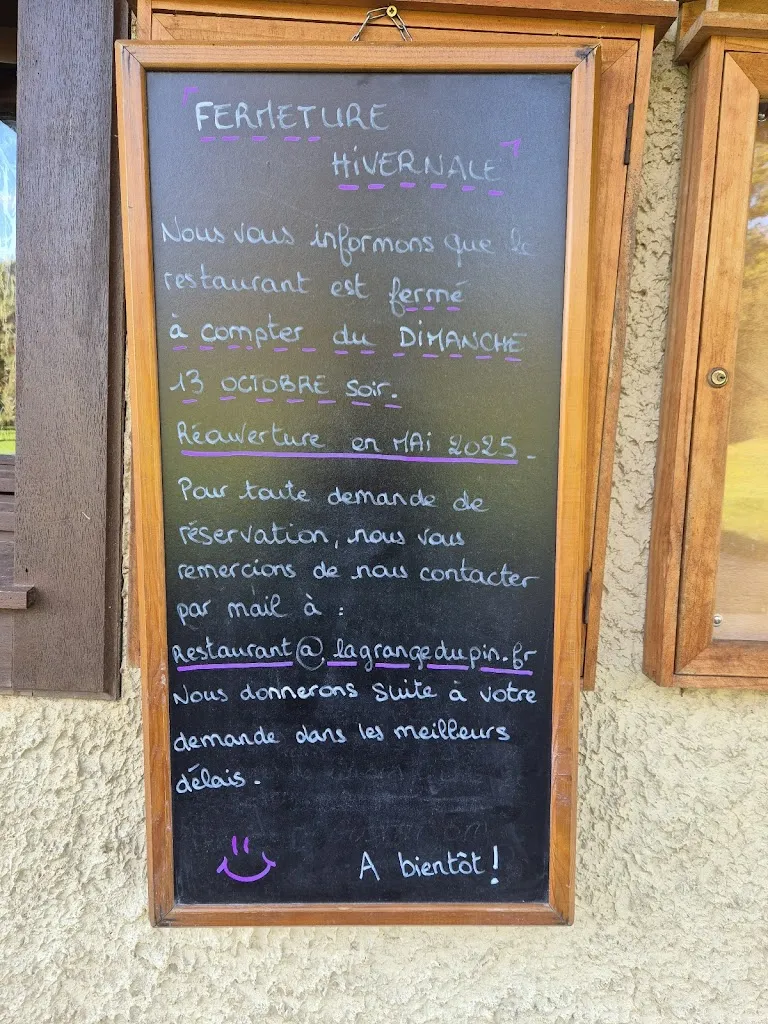 FERMETURE
HiVERNALE
Nous vous informons que le
restaurant est fermé
à compter du DIMANCHE
13 OCTOBRE soir.
Réouverture en MAi 2025.
Pour toute demande de
réservation, nous vous
remercions de nous contacter
par mail à :
Restaurant@lagrangedupin.fr
Nous donnerons suite à votre
demande dans les meilleurs
délais.
A bientôt!